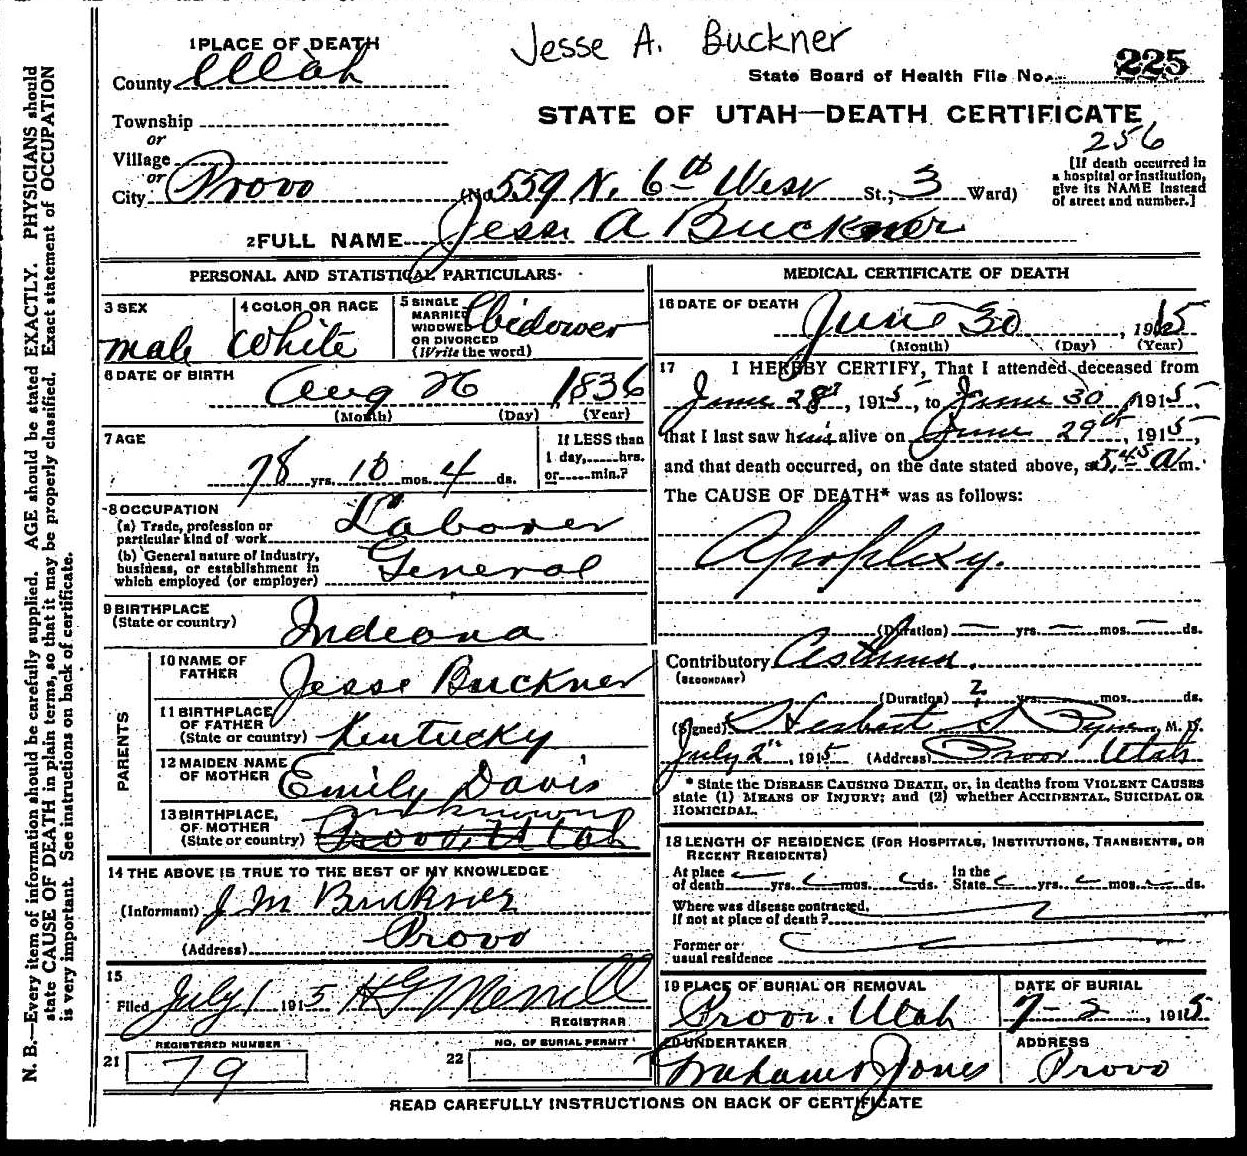 Jesse A. Buckner
1 PLACE OF DEATH
County Utah
State Board of Health File No. 225
Township
STATE OF UTAH—DEATH CERTIFICATE
or
Village
256
or
City Provo (No. 559 N. 6th West St.; 3 Ward)
[If death occurred in
a hospital or institution,
give its NAME instead
of street and number.]
2 FULL NAME Jesse A Buckner
PERSONAL AND STATISTICAL PARTICULARS
3 SEX
male
4 COLOR OR RACE
White
5 SINGLE
MARRIED
WIDOWED
OR DIVORCED
(Write the word)
Widower
6 DATE OF BIRTH
Aug 26, 1836
(Month) (Day) (Year)
7 AGE
78 yrs. 10 mos. 4 ds.
If LESS than
1 day,......hrs.
or......min.?
8 OCCUPATION
(a) Trade, profession or
particular kind of work Laborer
(b) General nature of industry,
business, or establishment in
which employed (or employer) General
9 BIRTHPLACE
(State or country) Indeana
PARENTS
10 NAME OF
FATHER Jesse Buckner
11 BIRTHPLACE
OF FATHER
(State or country) Kentucky
12 MAIDEN NAME
OF MOTHER Emily Davis
13 BIRTHPLACE,
OF MOTHER
(State or country) unknown
Provo, Utah
14 THE ABOVE IS TRUE TO THE BEST OF MY KNOWLEDGE
(Informant) J M Buckner
(Address) Provo
15
Filed July 1 1915 Merrill
REGISTRAR
REGISTERED NUMBER
21 79
NO. OF BURIAL PERMIT
22
MEDICAL CERTIFICATE OF DEATH
16 DATE OF DEATH
June 30, 1915
(Month) (Day) (Year)
17 I HEREBY CERTIFY, That I attended deceased from
June 28, 1915, to June 30 1915,
that I last saw him alive on June 29th, 1915,
and that death occurred, on the date stated above, at 5.45 A m.
The CAUSE OF DEATH* was as follows:
Apoplexy.
(Duration) — yrs. — mos. — ds.
Contributory Asthma.
(SECONDARY)
(Duration) 2 yrs. mos. ds.
(Signed) Herbert S Pyne, M. D.
July 2", 1915 (Address) Provo Utah
* State the DISEASE CAUSING DEATH, or, in deaths from VIOLENT CAUSES
state (1) MEANS OF INJURY; and (2) whether ACCIDENTAL, SUICIDAL OR
HOMICIDAL.
18 LENGTH OF RESIDENCE (FOR HOSPITALS, INSTITUTIONS, TRANSIENTS, OR
RECENT RESIDENTS)
At place
of death yrs. mos. ds.
In the
State yrs. mos. ds.
Where was disease contracted,
If not at place of death?
Former or
usual residence
19 PLACE OF BURIAL OR REMOVAL
Provo. Utah
DATE OF BURIAL
7-2, 1915
20 UNDERTAKER
Jones
ADDRESS
Provo
READ CAREFULLY INSTRUCTIONS ON BACK OF CERTIFICATE
N. B.—Every item of information should be carefully supplied. AGE should be stated EXACTLY. PHYSICIANS should
state CAUSE OF DEATH in plain terms, so that it may be properly classified. Exact statement of OCCUPATION
is very important. See instructions on back of certificate.